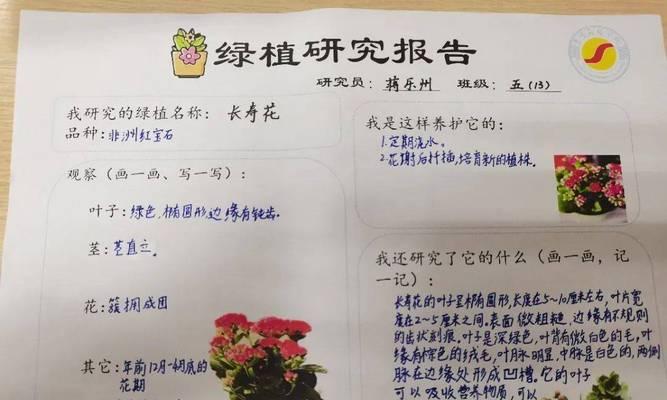 绿植研究报告
研究员：蒋乐州 班级：五(13)
我研究的绿植名称：长寿花
品种：非洲红宝石
观察（画一画、写一写）：
叶子：绿色，椭圆形，边缘有钝齿。
茎：茎直立。
花：簇拥成团
其它：年前12月-4月底的
花期
我是这样养护它的：
1.定期浇水。
2.花期后扦插，培育新的植株。
我还研究了它的什么（画一画，记
一记）：
长寿花的叶子呈椭圆形，长度在5~10厘米左右，叶片宽
度在2~5厘米之间。表面微粗糙，边缘有不规则
的齿状刻痕。叶子是深绿色，叶背有微白色的毛，叶
缘有棕色的绒毛，叶脉明显，中脉是白色的，两侧
脉在边缘处形成凹槽。它的叶子
可以吸收营养物质，可以